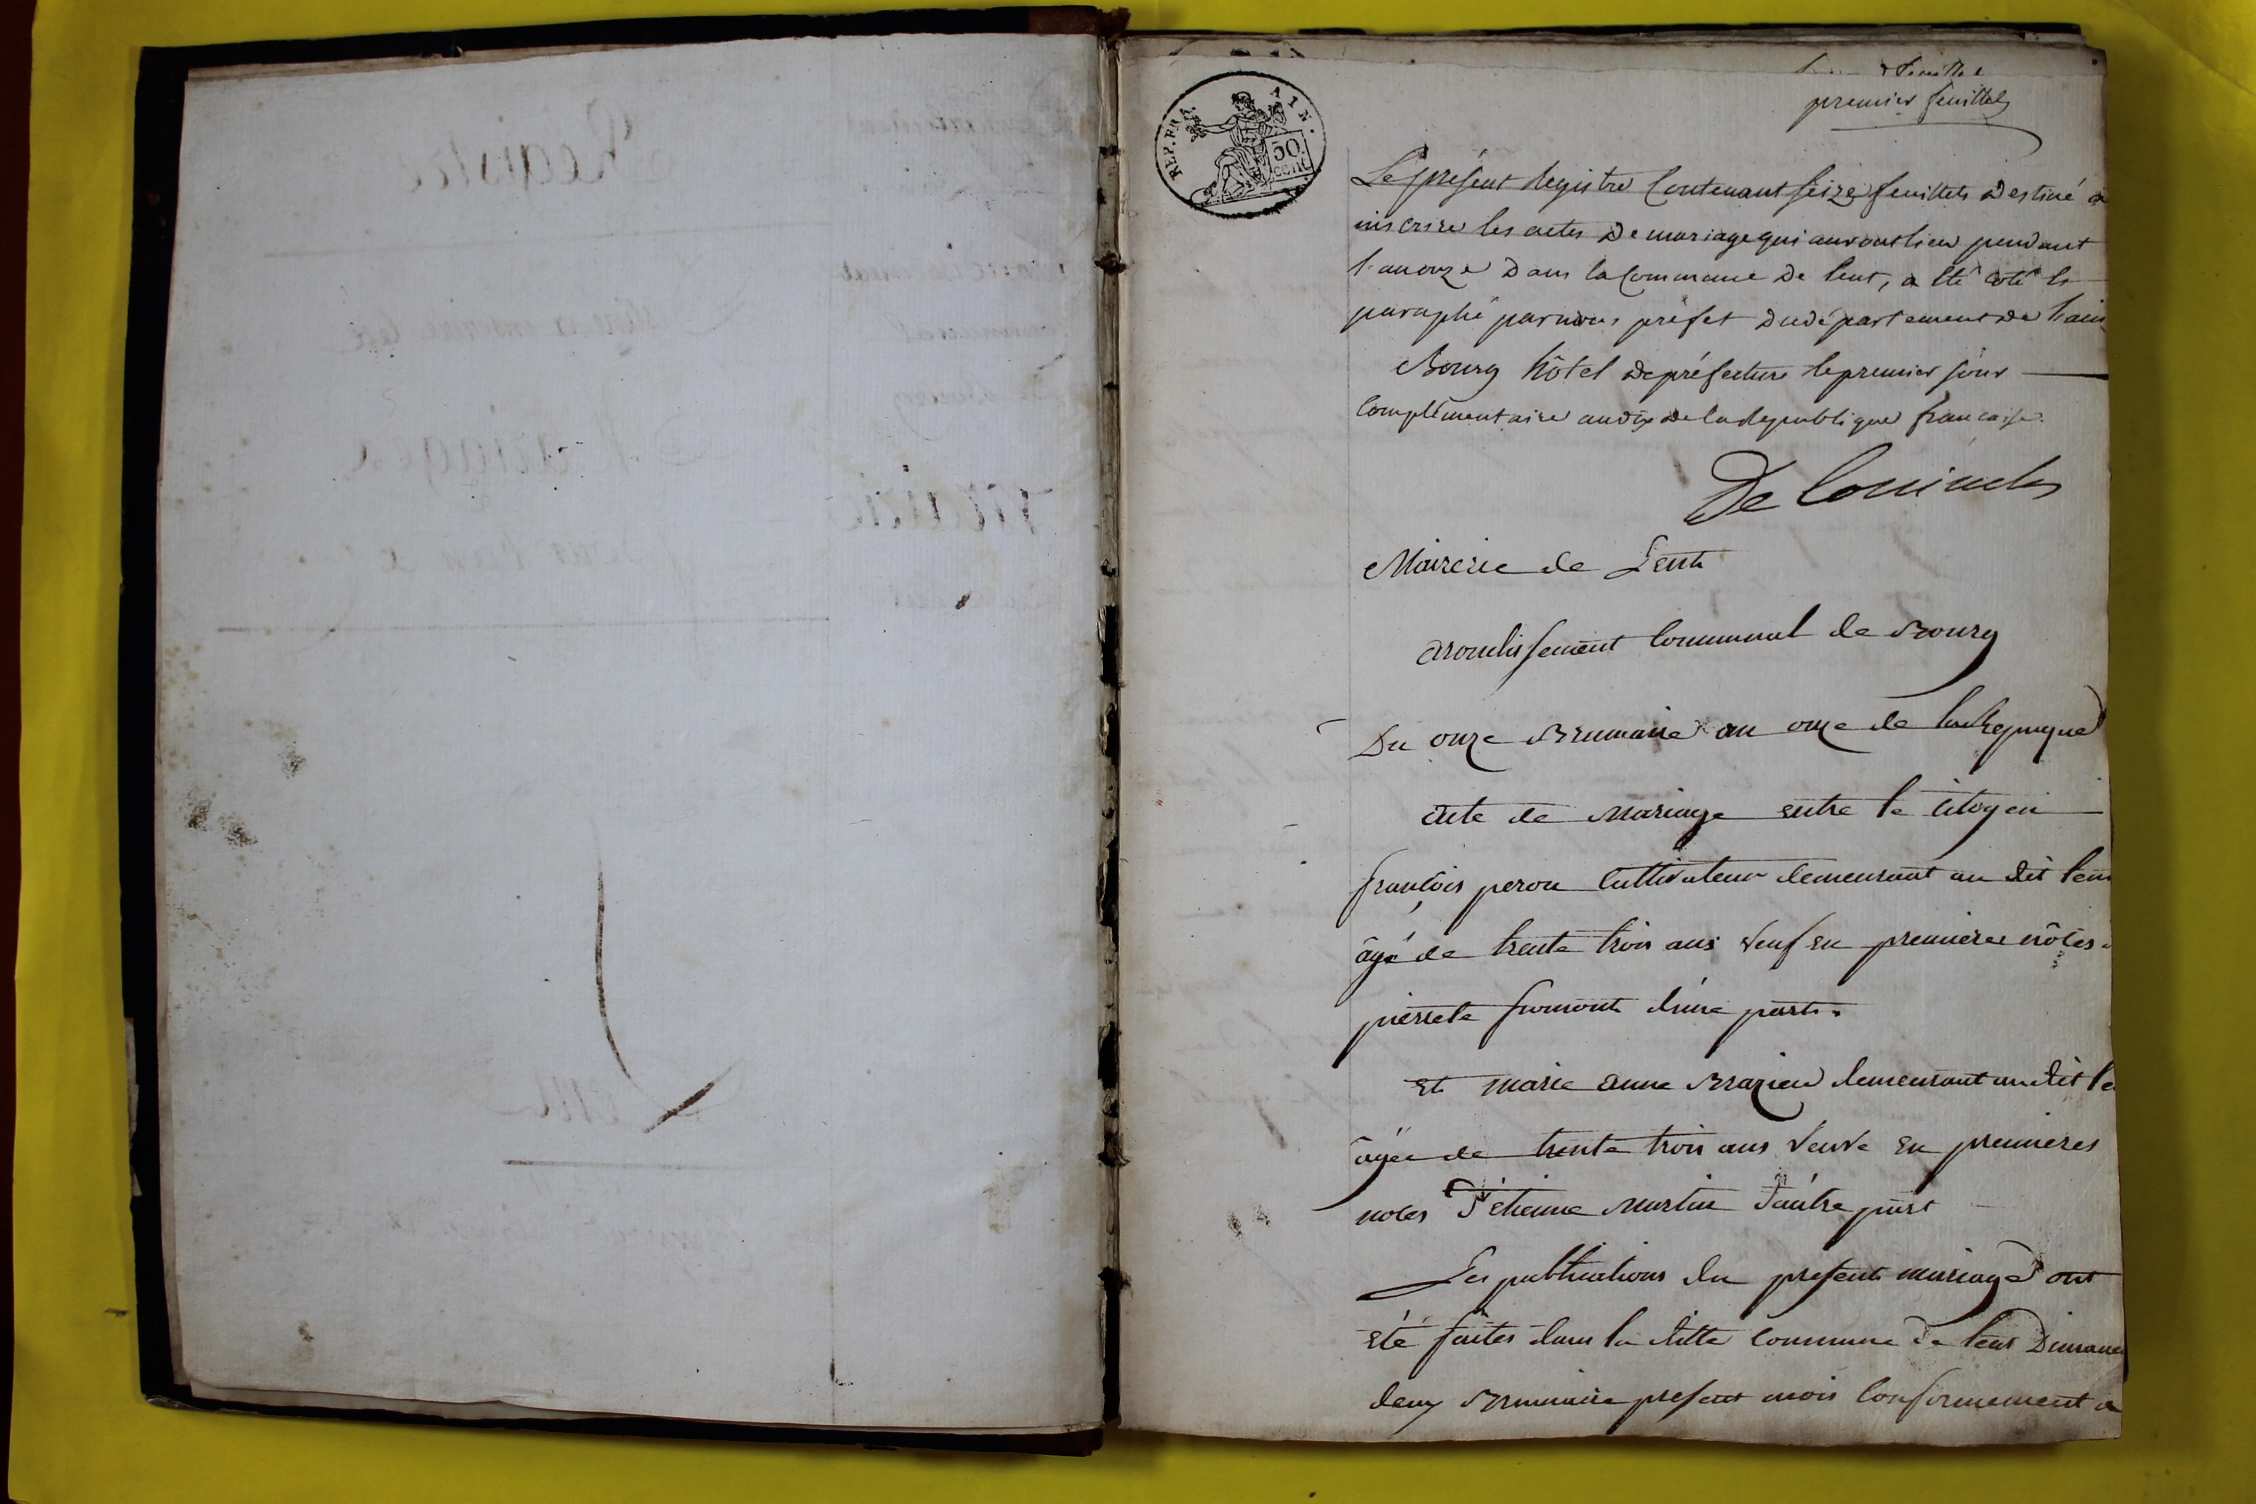 REP. FRA. AIN.
50 CENT.
feuillet
premier feuillet
Le présent Registre Contenant seize feuillets Destiné a
inscrire les actes De mariage qui auront lieu pendant
l'an onze Dans la Commune De lent, a été coté et
paraphé par nous préfet du département de l'ain
Bourg hôtel de préfecture le premier jour
Complémentaire an dix de la Republique française.
Mairerie de Lent
arondissement Communal de Bourg
Du onze Brumaire an onze de la
Acte de Mariage entre le Citoyen
françois peron Cultivateur demeurant au dit lent
âgé de trente trois ans veuf en premiere nôces
pierrete fromont d'une part.
Et Marie Anne demeurant au dit le
âgée de trente trois ans veuve en premieres
noces D'étienne Martin d'autre part
Les publications du present mariage ont
été faites dans la ditte Commune De lent Dimanc
deux Brumaire present mois Conformement a